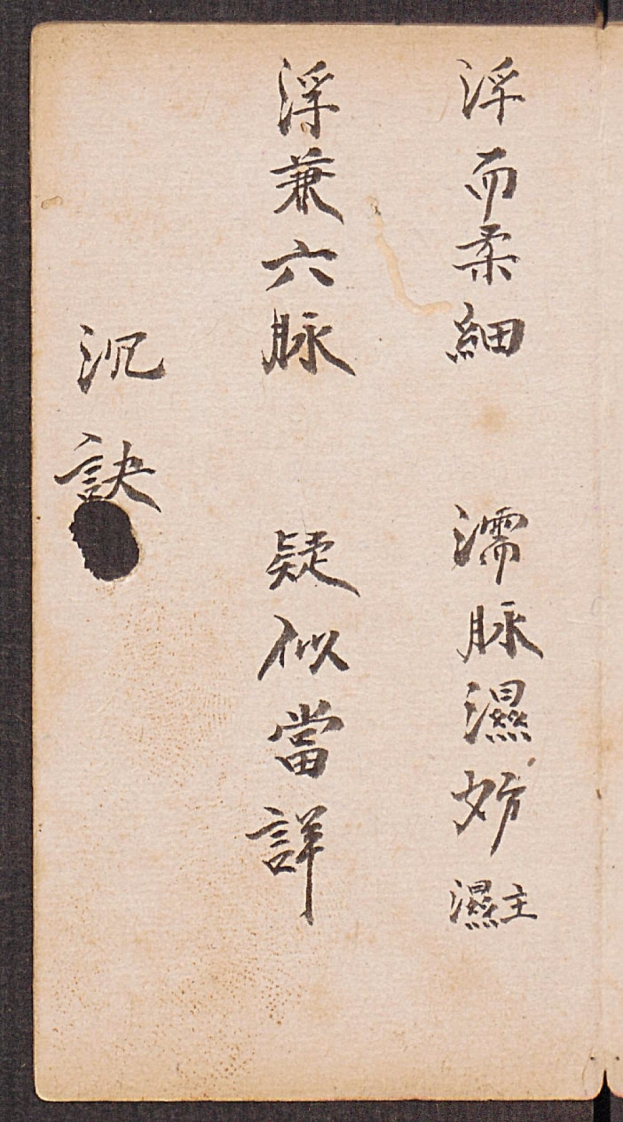 浮而柔細　濡脉濕妨主濕
浮兼六脉　疑似當詳
沉訣